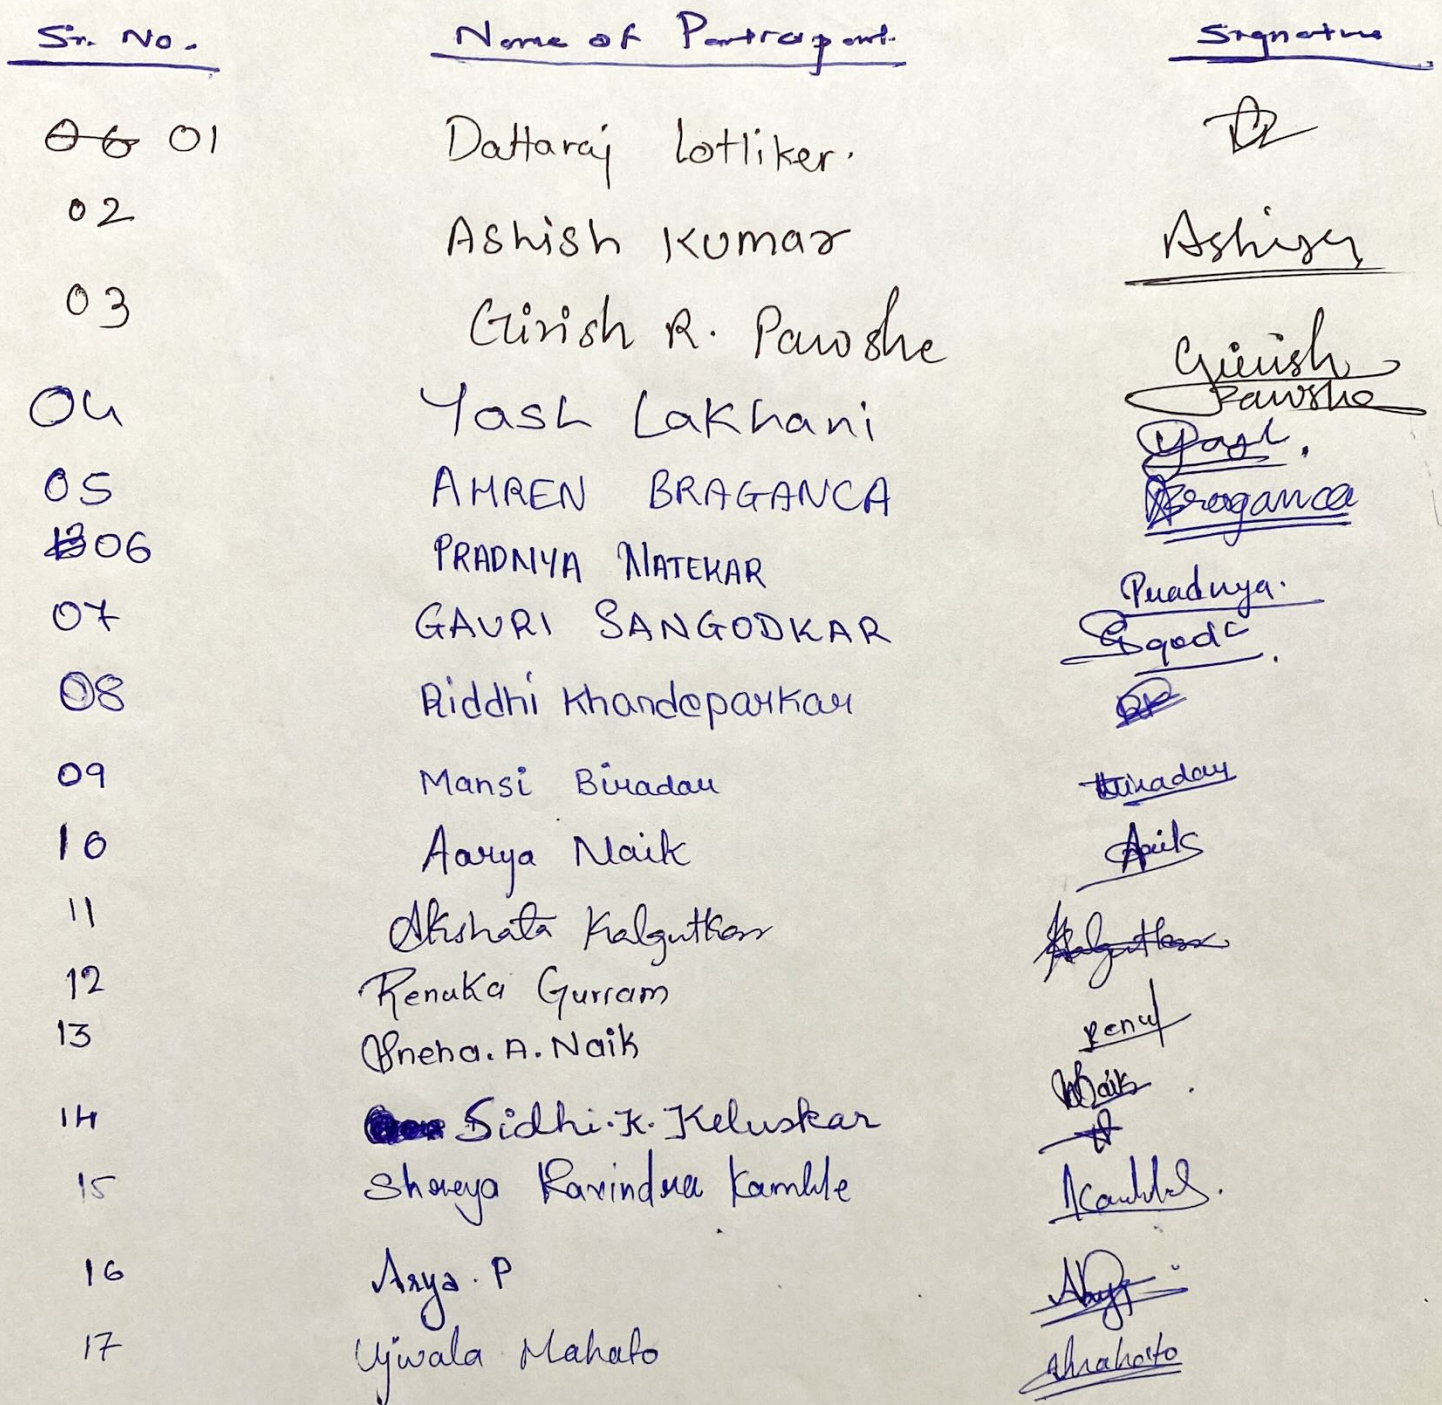 Sr. No. Name of Participant Signature
01 Dattaraj Lotliker.
02 Ashish Kumar Ashish
03 Girish R. Pawshe Girish Pawshe
04 Yash Lakhani Yash.
05 AHREN BRAGANCA Braganca
06 PRADNYA NATEKAR Pradnya.
07 GAURI SANGODKAR
08 Riddhi Khandeparkar
09 Mansi Biradar Biradar
10 Aarya Naik
11 Akshata Kalgutkar Kalgutkar
12 Renuka Gurram Renu
13 Sneha. A. Naik Naik
14 Sidhi. K. Keluskar
15 Shreya Ravindra Kamble
16 Arya. P
17 Ujwala Mahato Mahato